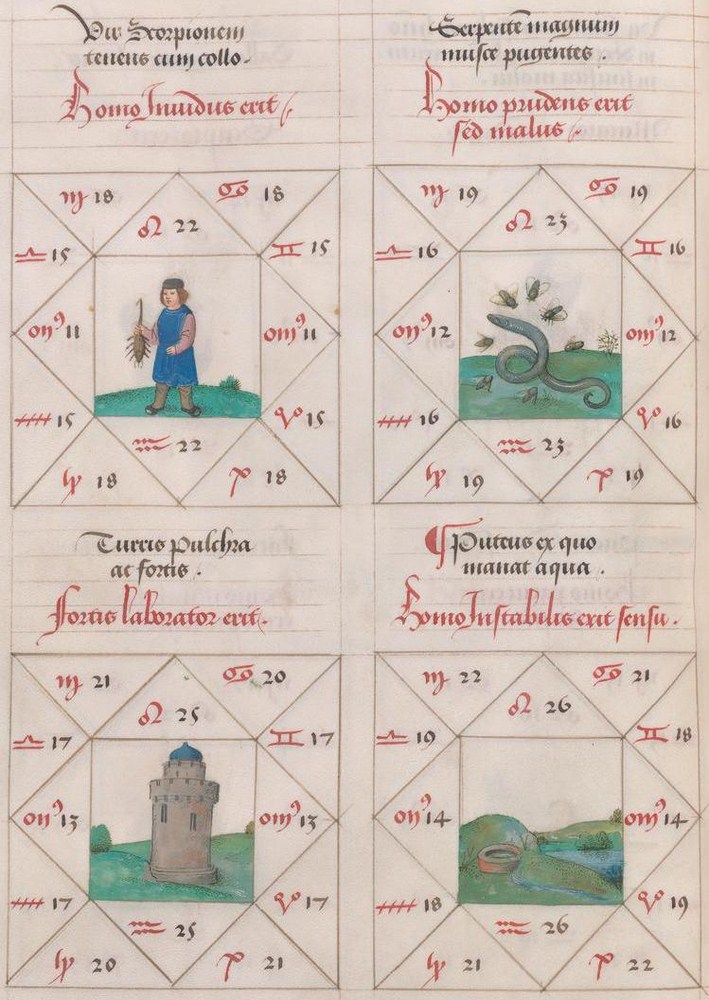 Vir Scorpionem
tenens cum collo.
Homo Inuidus erit
♍ 18 ♋ 18
♌ 22
♎ 15 ♊ 15
11 11
15 ♈ 15
♒ 22
18 18
Serpentē magnum
musce pugentes.
Homo prudens erit
sed malus
♍ 19 ♋ 19
♌ 23
♎ 16 ♊ 16
12 12
16 ♈ 16
♒ 23
19 19
Turris pulchra
ac fortis.
fortis laborator erit.
♍ 21 ♋ 20
♌ 25
♎ 17 ♊ 17
13 13
17 ♈ 17
♒ 25
20 21
Puteus ex quo
manat aqua.
Homo Instabilis erit sensu.
♍ 22 ♋ 21
♌ 26
♎ 19 ♊ 18
14 14
18 ♈ 19
♒ 26
21 22